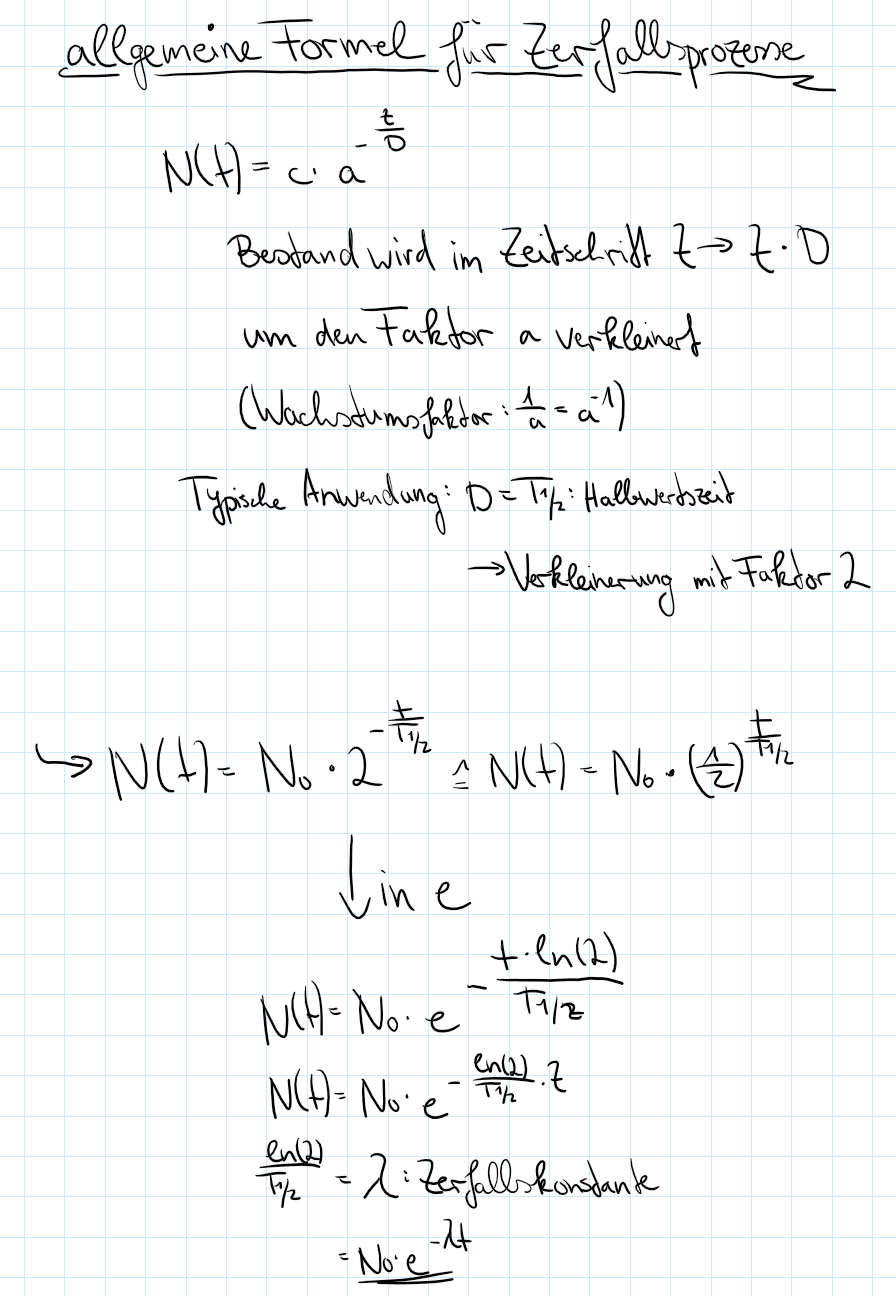 allgemeine Formel für Zerfallsprozesse
N(t) = c · a^(-t/D)
Bestand wird im Zeitschritt t → t · D
um den Faktor a verkleinert
(Wachstumsfaktor: 1/a = a^-1)
Typische Anwendung: D = T1/2: Halbwertszeit
→ Verkleinerung mit Faktor 2
↪ N(t) = N₀ · 2^(-t/T1/2) ≙ N(t) = N₀ · (1/2)^(t/T1/2)
↓ in e
N(t) = N₀ · e^(-(t · ln(2))/T1/2)
N(t) = N₀ · e^(-ln(2)/T1/2 · t)
ln(2)/T1/2 = λ: Zerfallskonstante
= N₀ · e^(-λt)